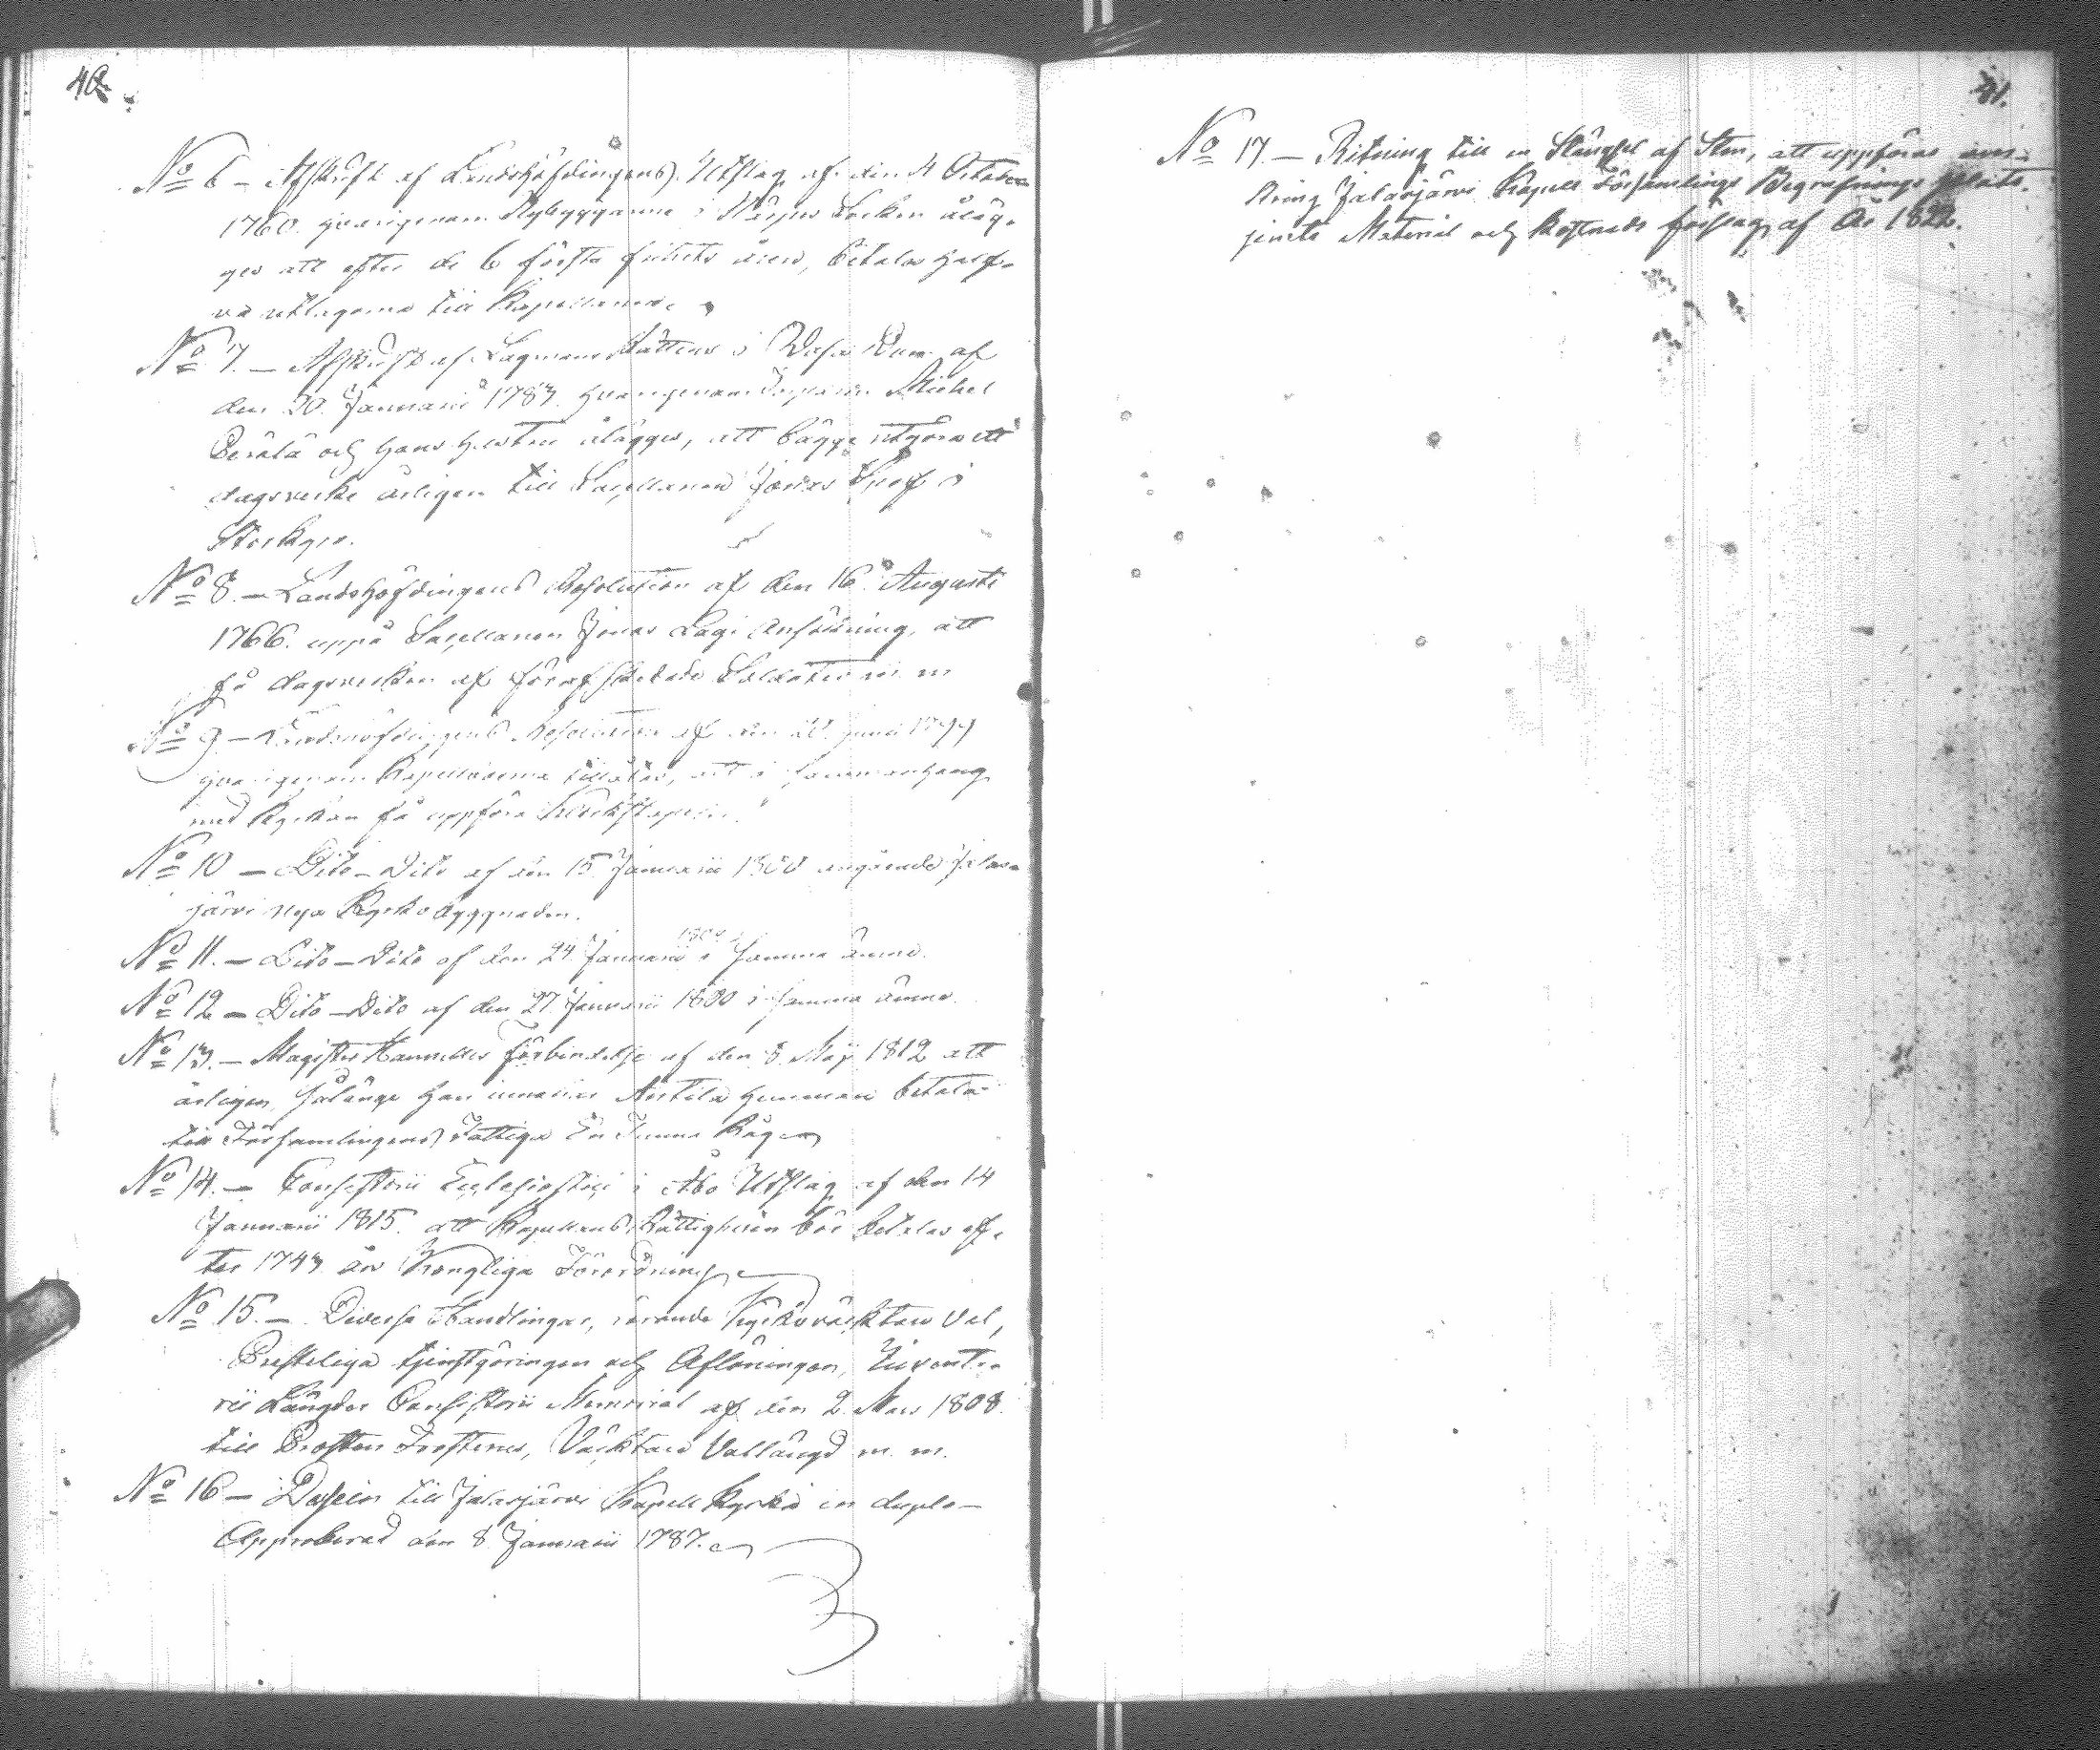 40.
No 6 – Afskrift af Landshöfdingens Utslag af den 4 October
1760. hvarigenom Nybyggarne i Närpes Socken åläg-
ges att efter de 6 första frihets åren, betala half-
va utlagorna till Kapellanen.
No 7. – Afskrift af Lagmans Rättens i Wasa Dom af
den 20 Januarii 1783 hvarigenom Michel
Perälä och hans hustru ålägges, att bägge utgöra ett
dagsverke årligen till Sacellanen Jonas
No 8. – Landshöfdingens Resolution af den 16 Augusti
1766. uppå Sacellanen Jonas Lagi Ansökning, att
få dagsverken af förafskedade Soldater m m
No 9 – Landshöfdingens Resolution af den Junii 1799
hvarigenom Kapellboerne tillåtes, att i sammanhang
med Kyrkan få uppföra Klockstapeln.
No 10 – Dito – Dito af den 15 Januarii 1800 angående Jalas-
järvi nya Kyrkobyggnaden.
No 11. – Dito – Dito af den 24 Januarii 1800 i samma ämne.
No 12 – Dito – Dito af den 27 Januarii 1800 i samma ämne.
No 13. – Magister Förbindelse af den 8 Maij 1812 att
årligen, sålänge han innehar Anttila hemman betala
till Församlingens Fattiga En Tunna Råg
No 14. – Consistorii Ecclesiastici i Åbo Utslag af den 14
Januarii 1815. att Kapellans Rättigheten bör betalas ef-
ter 1743 års Kongliga Förordning
No 15. – Diverse Handlingar, rörande Kyrkoväcktare Val,
Presteliga tjenstgöringen och Aflöningen, Invента-
rii Längder Consistorii Memorial af den 2 Mars 1808.
till Prosten Frosterus, Väcktare Vallängd m. m.
No 16 – Dessein till Jalasjärvi Kapell Kyrka in duplo –
Approberad den 8 Januarii 1787.
41.
No 17. – Ritning till en Stängsel af Sten, att uppföras om-
kring Jalasjärvi Kapell Församlings Begrafnings plats.
jemte Material och Kostnads förslag, af År 1822.